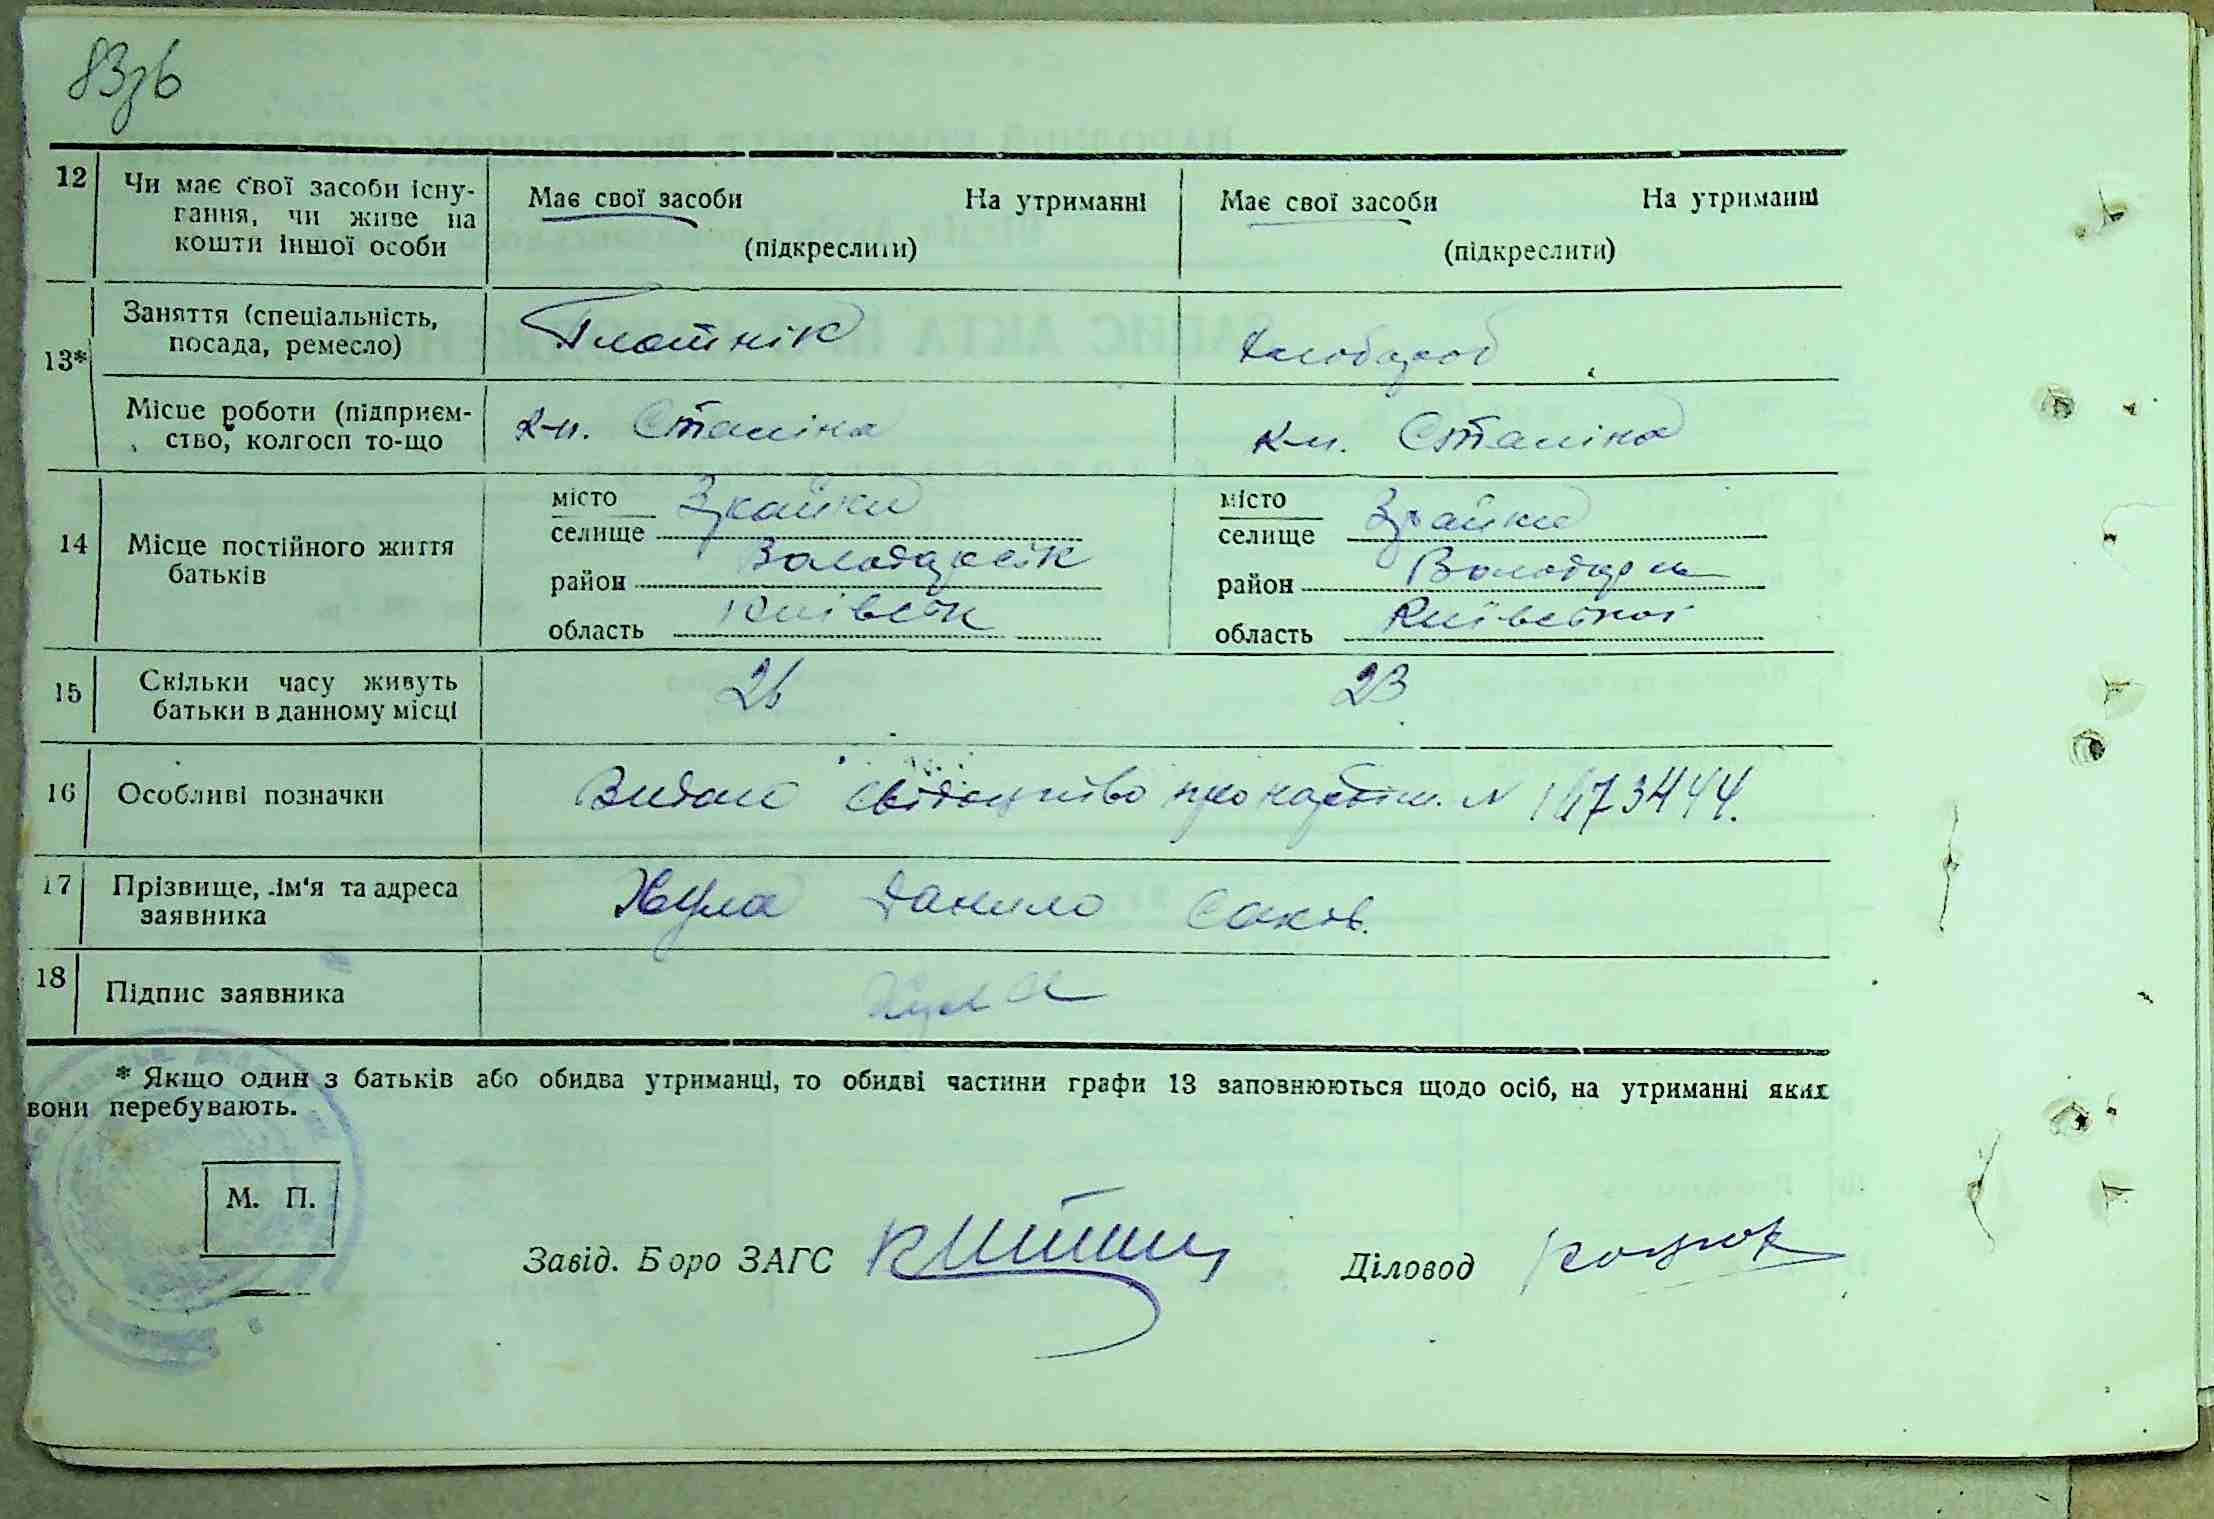 83зв
12 Чи має свої засоби існу-
гання, чи живе на
кошти іншої особи
Має свої засоби На утриманні
(підкреслити)
Має свої засоби На утриманні
(підкреслити)
13*
Заняття (спеціальність,
посада, ремесло)
Плотнік
Хлібороб
Місце роботи (підприєм-
ство, колгосп то-що
к-п. Сталіна
к-п. Сталіна
14 Місце постійного життя
батьків
місто
селище Зрайки
район Володарсік
область Київсік
місто
селище Зрайки
район Володарск
область Київської
15 Скільки часу живуть
батьки в данному місці
26
23
16 Особливі позначки
Видано свідоцтво про народж. N 1673444.
17 Прізвище, ім'я та адреса
заявника
Жула Данило Саков.
18 Підпис заявника
* Якщо один з батьків або обидва утриманці, то обидві частини графи 13 заповнюються щодо осіб, на утриманні яких
вони перебувають.
М. П.
Завід. Бюро ЗАГС
Діловод